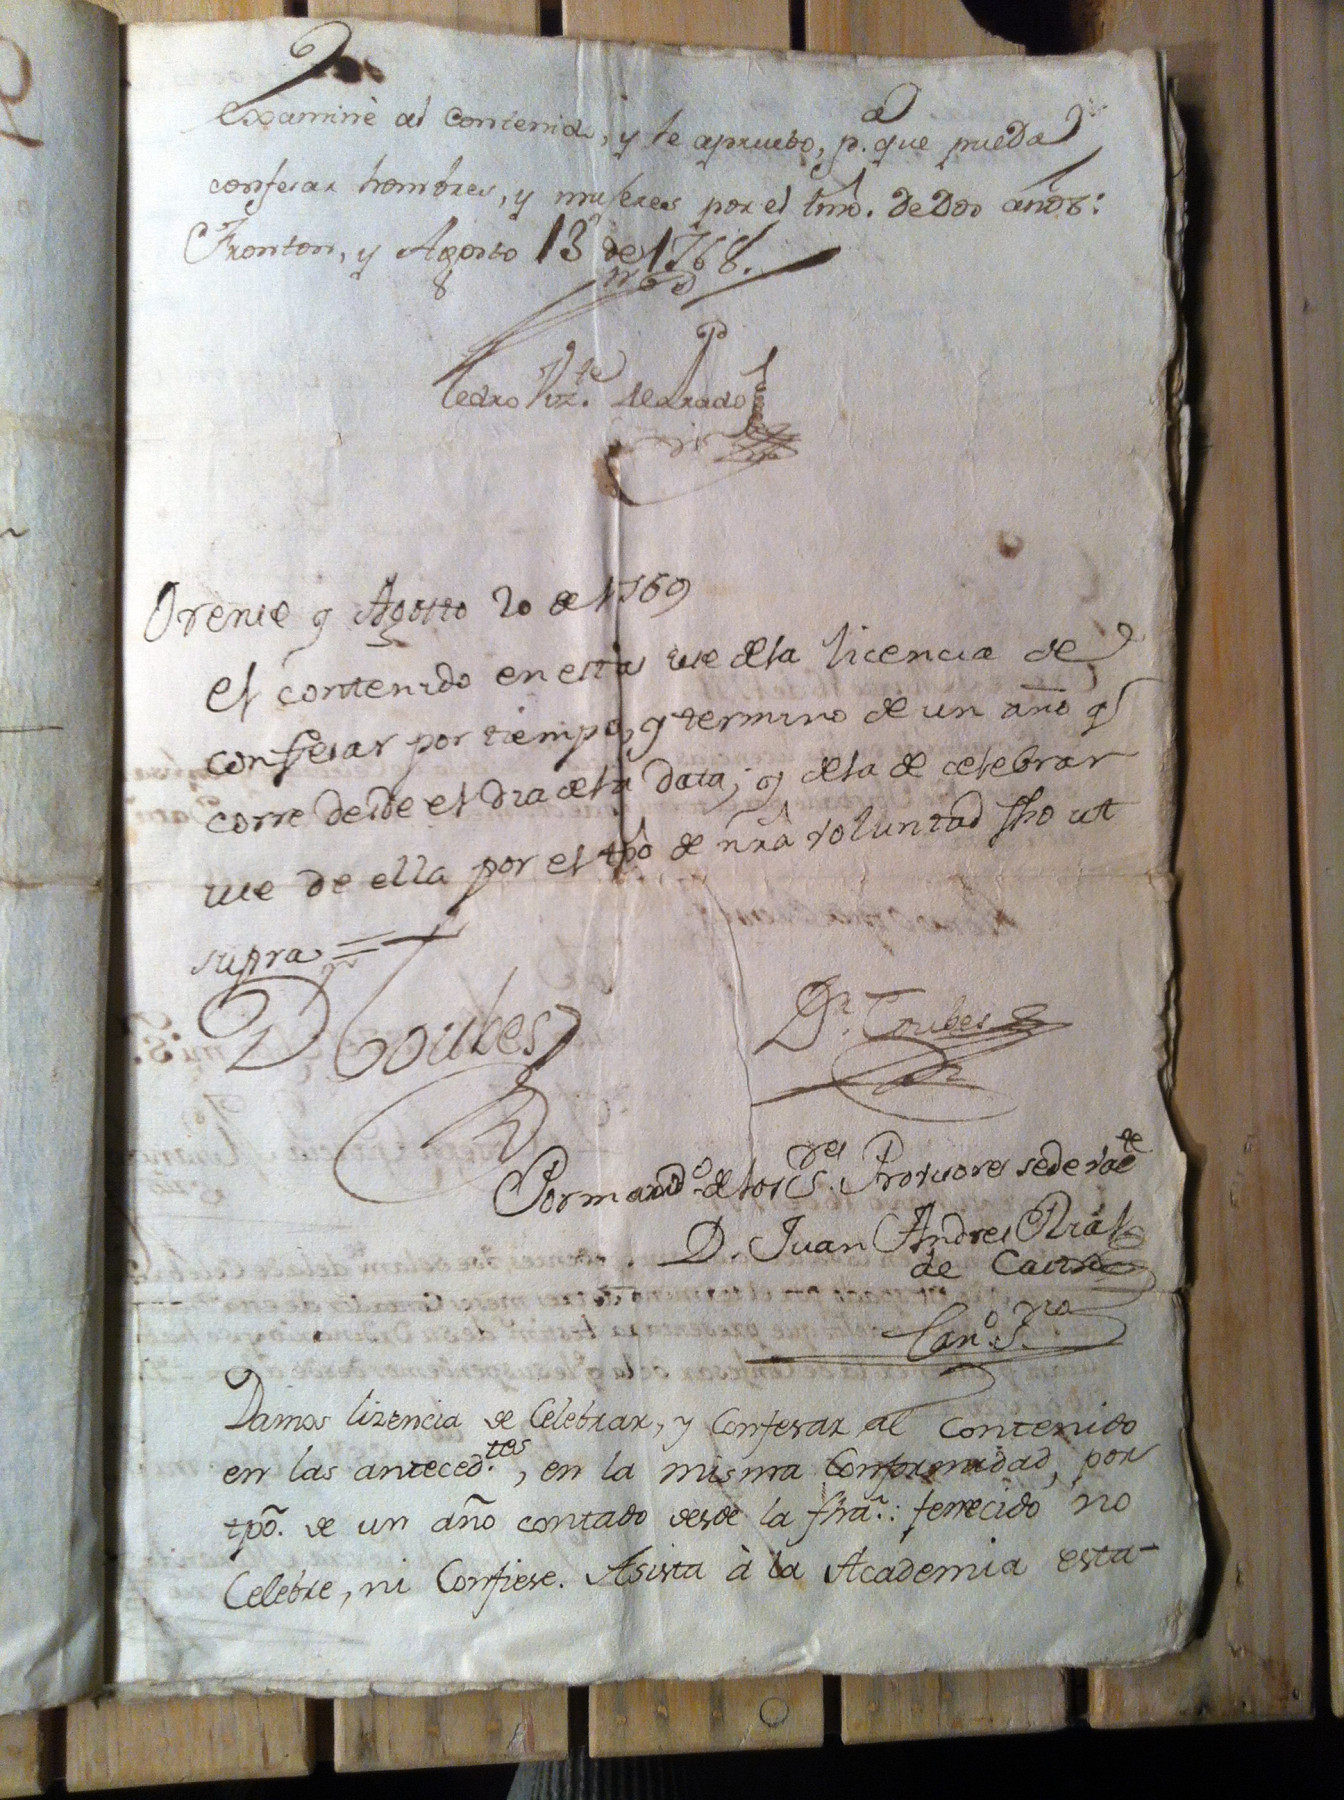 Examinè al Contenido, y le apruebo, p.ª que pueda
confesar hombres, y mugeres por el tmô. de Dos años:
Fronton, y Agosto 13 de 1768.
Pedro
Orense y Agosto 20 de 1769
el contenido en esta use de la licencia de
confesar por tiempo, y termino de un año q̃
corre desde el dia de la data; y de la de celebrar
use de ella por el tpô de nrâ voluntad fho ut
supra =
D Toubes
Dr. Toubes
Por mandº de los S.res Provisores sede vacte
D. Juan Andres
de
Canº. S.rio
Damos lizencia de Celebrar, y Confesar al Contenido
en las anteced.tes, en la misma Conformidad, por
tpô. de un año contado desde la fhâ.: fenecido no
Celebre, ni Confiese. Asista à la Academia esta-